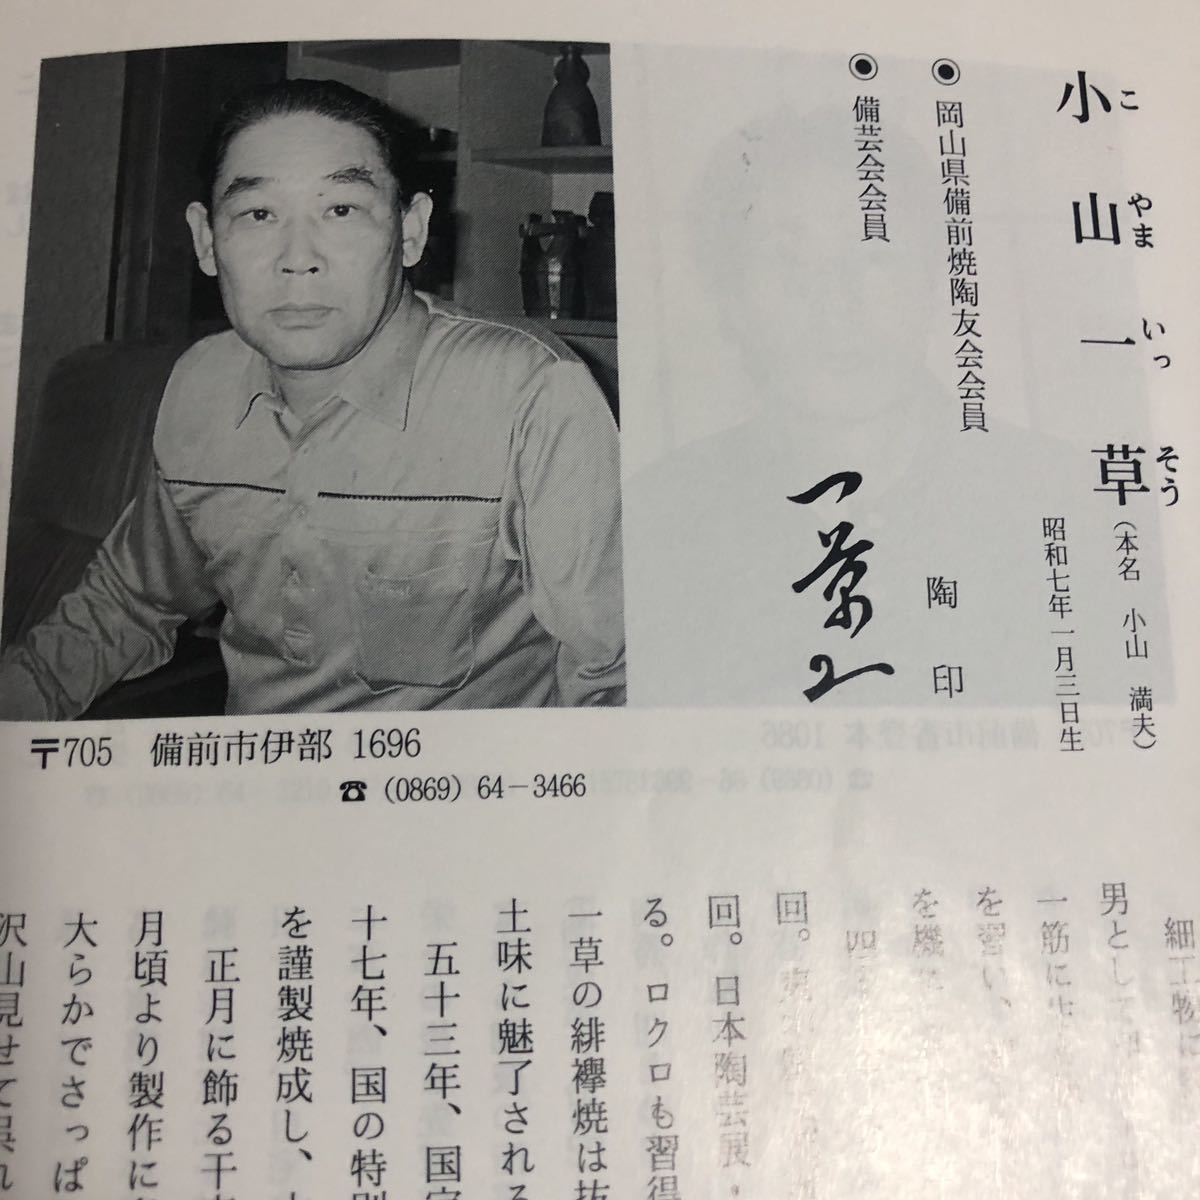 小山一草
こ やま いっ そう
(本名 小山 満夫)
昭和七年一月三日生
◉ 岡山県備前焼陶友会会員
◉ 備芸会会員
陶印
〒705 備前市伊部 1696
☎ (0869) 64-3466
細工物に
男として
一筋に
を習い、
を機
回。
回。日本陶芸展・
る。ロクロも習得
一草の緋襷焼は抜
土味に魅了される
五十三年、国
十七年、国の特別
を謹製焼成し、
正月に飾る干
月頃より製作に
大らかでさっぱ
沢山見せて呉れ